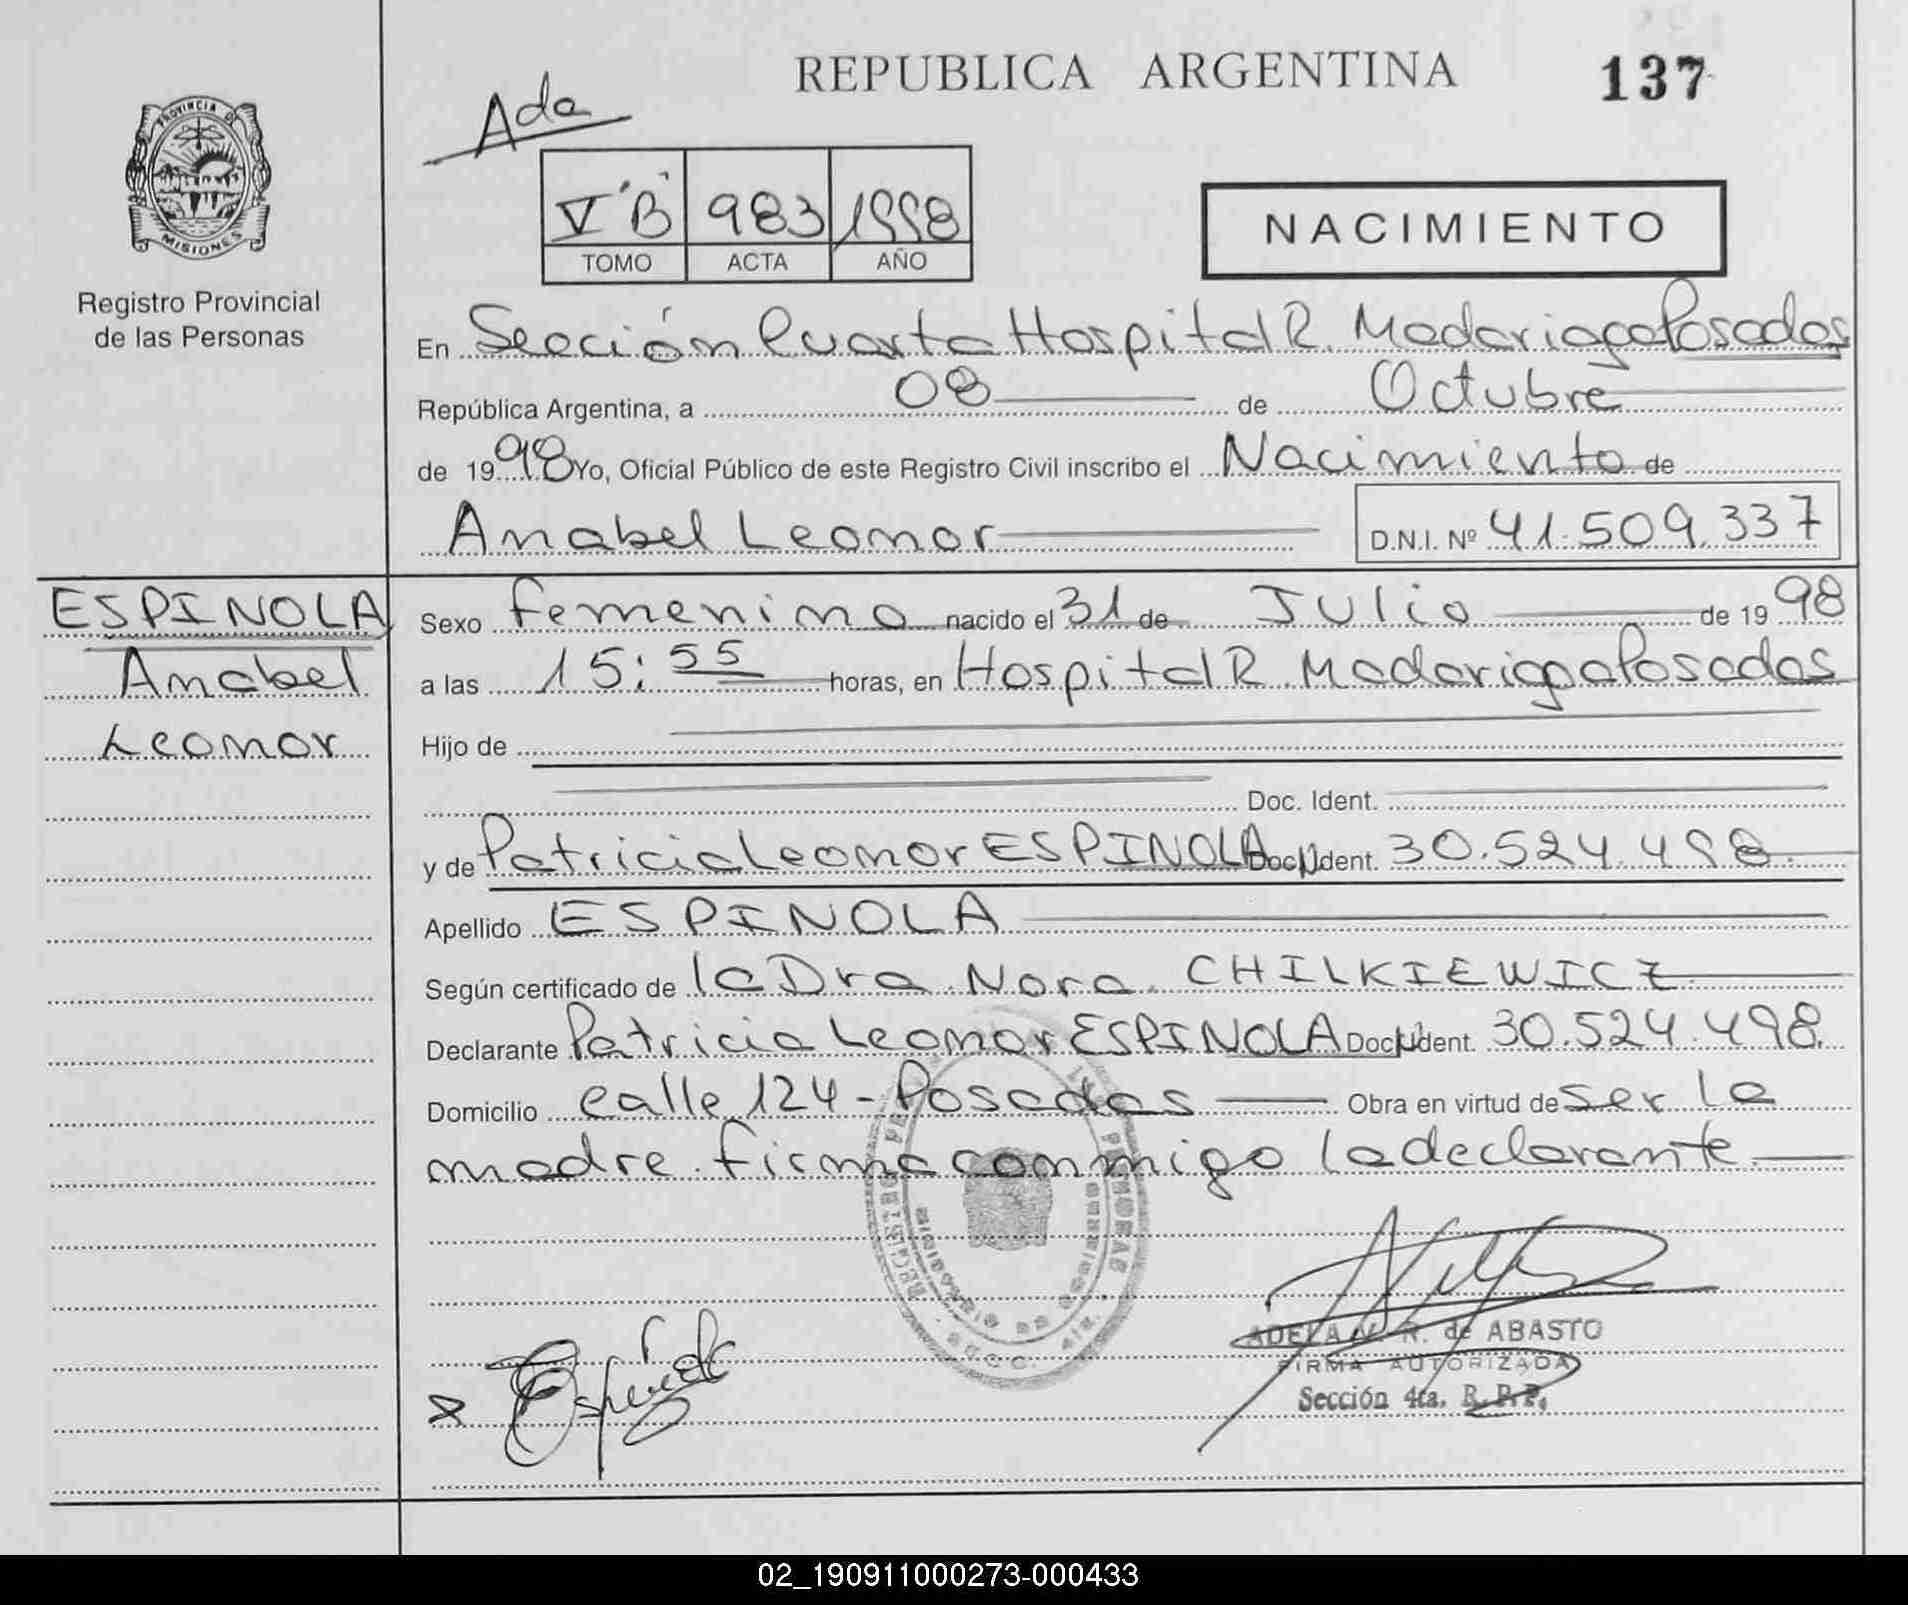 REPUBLICA ARGENTINA
137
Ada
PROVINCIA DE
MISIONES
Registro Provincial
de las Personas
V "B" 983 1998
TOMO ACTA AÑO
NACIMIENTO
En Sección Cuarta Hospital R. Madariaga Posadas
República Argentina, a 08 de Octubre
de 1998 Yo, Oficial Público de este Registro Civil inscribo el Nacimiento de
Anabel Leonor D.N.I. Nº 41.509.337
ESPINOLA
Anabel
Leonor
Sexo femenino nacido el 31 de Julio de 1998
a las 15:55 horas, en Hospital R. Madariaga Posadas
Hijo de
Doc. Ident.
y de Patricia Leonor ESPINOLA Doc. Ident. 30.524.498.
Apellido ESPINOLA
Según certificado de la Dra. Nora CHILKIEWICZ
Declarante Patricia Leonor ESPINOLA Doc. Ident. 30.524.498.
Domicilio calle 124 - Posadas Obra en virtud de ser la
madre. firma conmigo la declarante.
REGISTRO PERSONAS
ADELA N. R. de ABASTO
FIRMA AUTORIZADA
Sección 4ta. R. P. P.
02_190911000273-000433